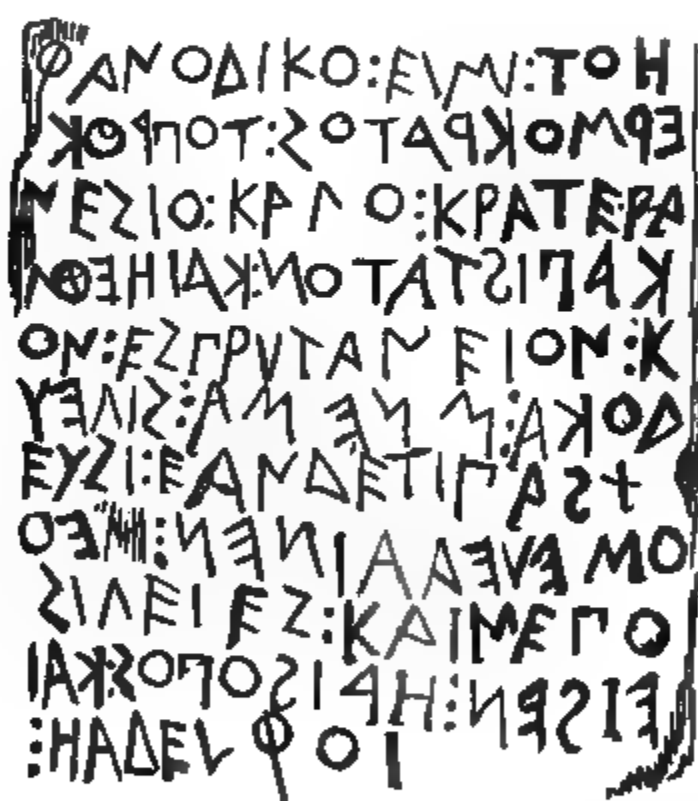 ΦΑΝΟΔΙΚΟ:ΕΙΜΙ:ΤΟΗ
ΕΡΜΟΚΡΑΤΟΣ:ΤΟΠΡΟΚΟ
ΝΕΣΙΟ:ΚΑΛΟ:ΚΡΑΤΕΡΑ
ΚΑΠΙΣΤΑΤΟΝ:ΚΑΙΗΕΘΜ
ΟΝ:ΕΣΠΡΥΤΑΝΕΙΟΝ:Κ
ΔΟΚΑ:ΜΝΕΜΑ:ΣΙΛΕΥ
ΕΥΣΙ:ΕΑΝΔΕΤΙΠΑΣ+
ΟΜΕΛΕΔΑΙΝΕΝ:ΜΕΟ
ΣΙΛΕΙΕΣ:ΚΑΙΜΕΠΟ
ΕΙΣΕΝ:ΗΑΙΣΟΠΟΣ:ΚΑΙ
:ΗΑΔΕΛΦΟΙ